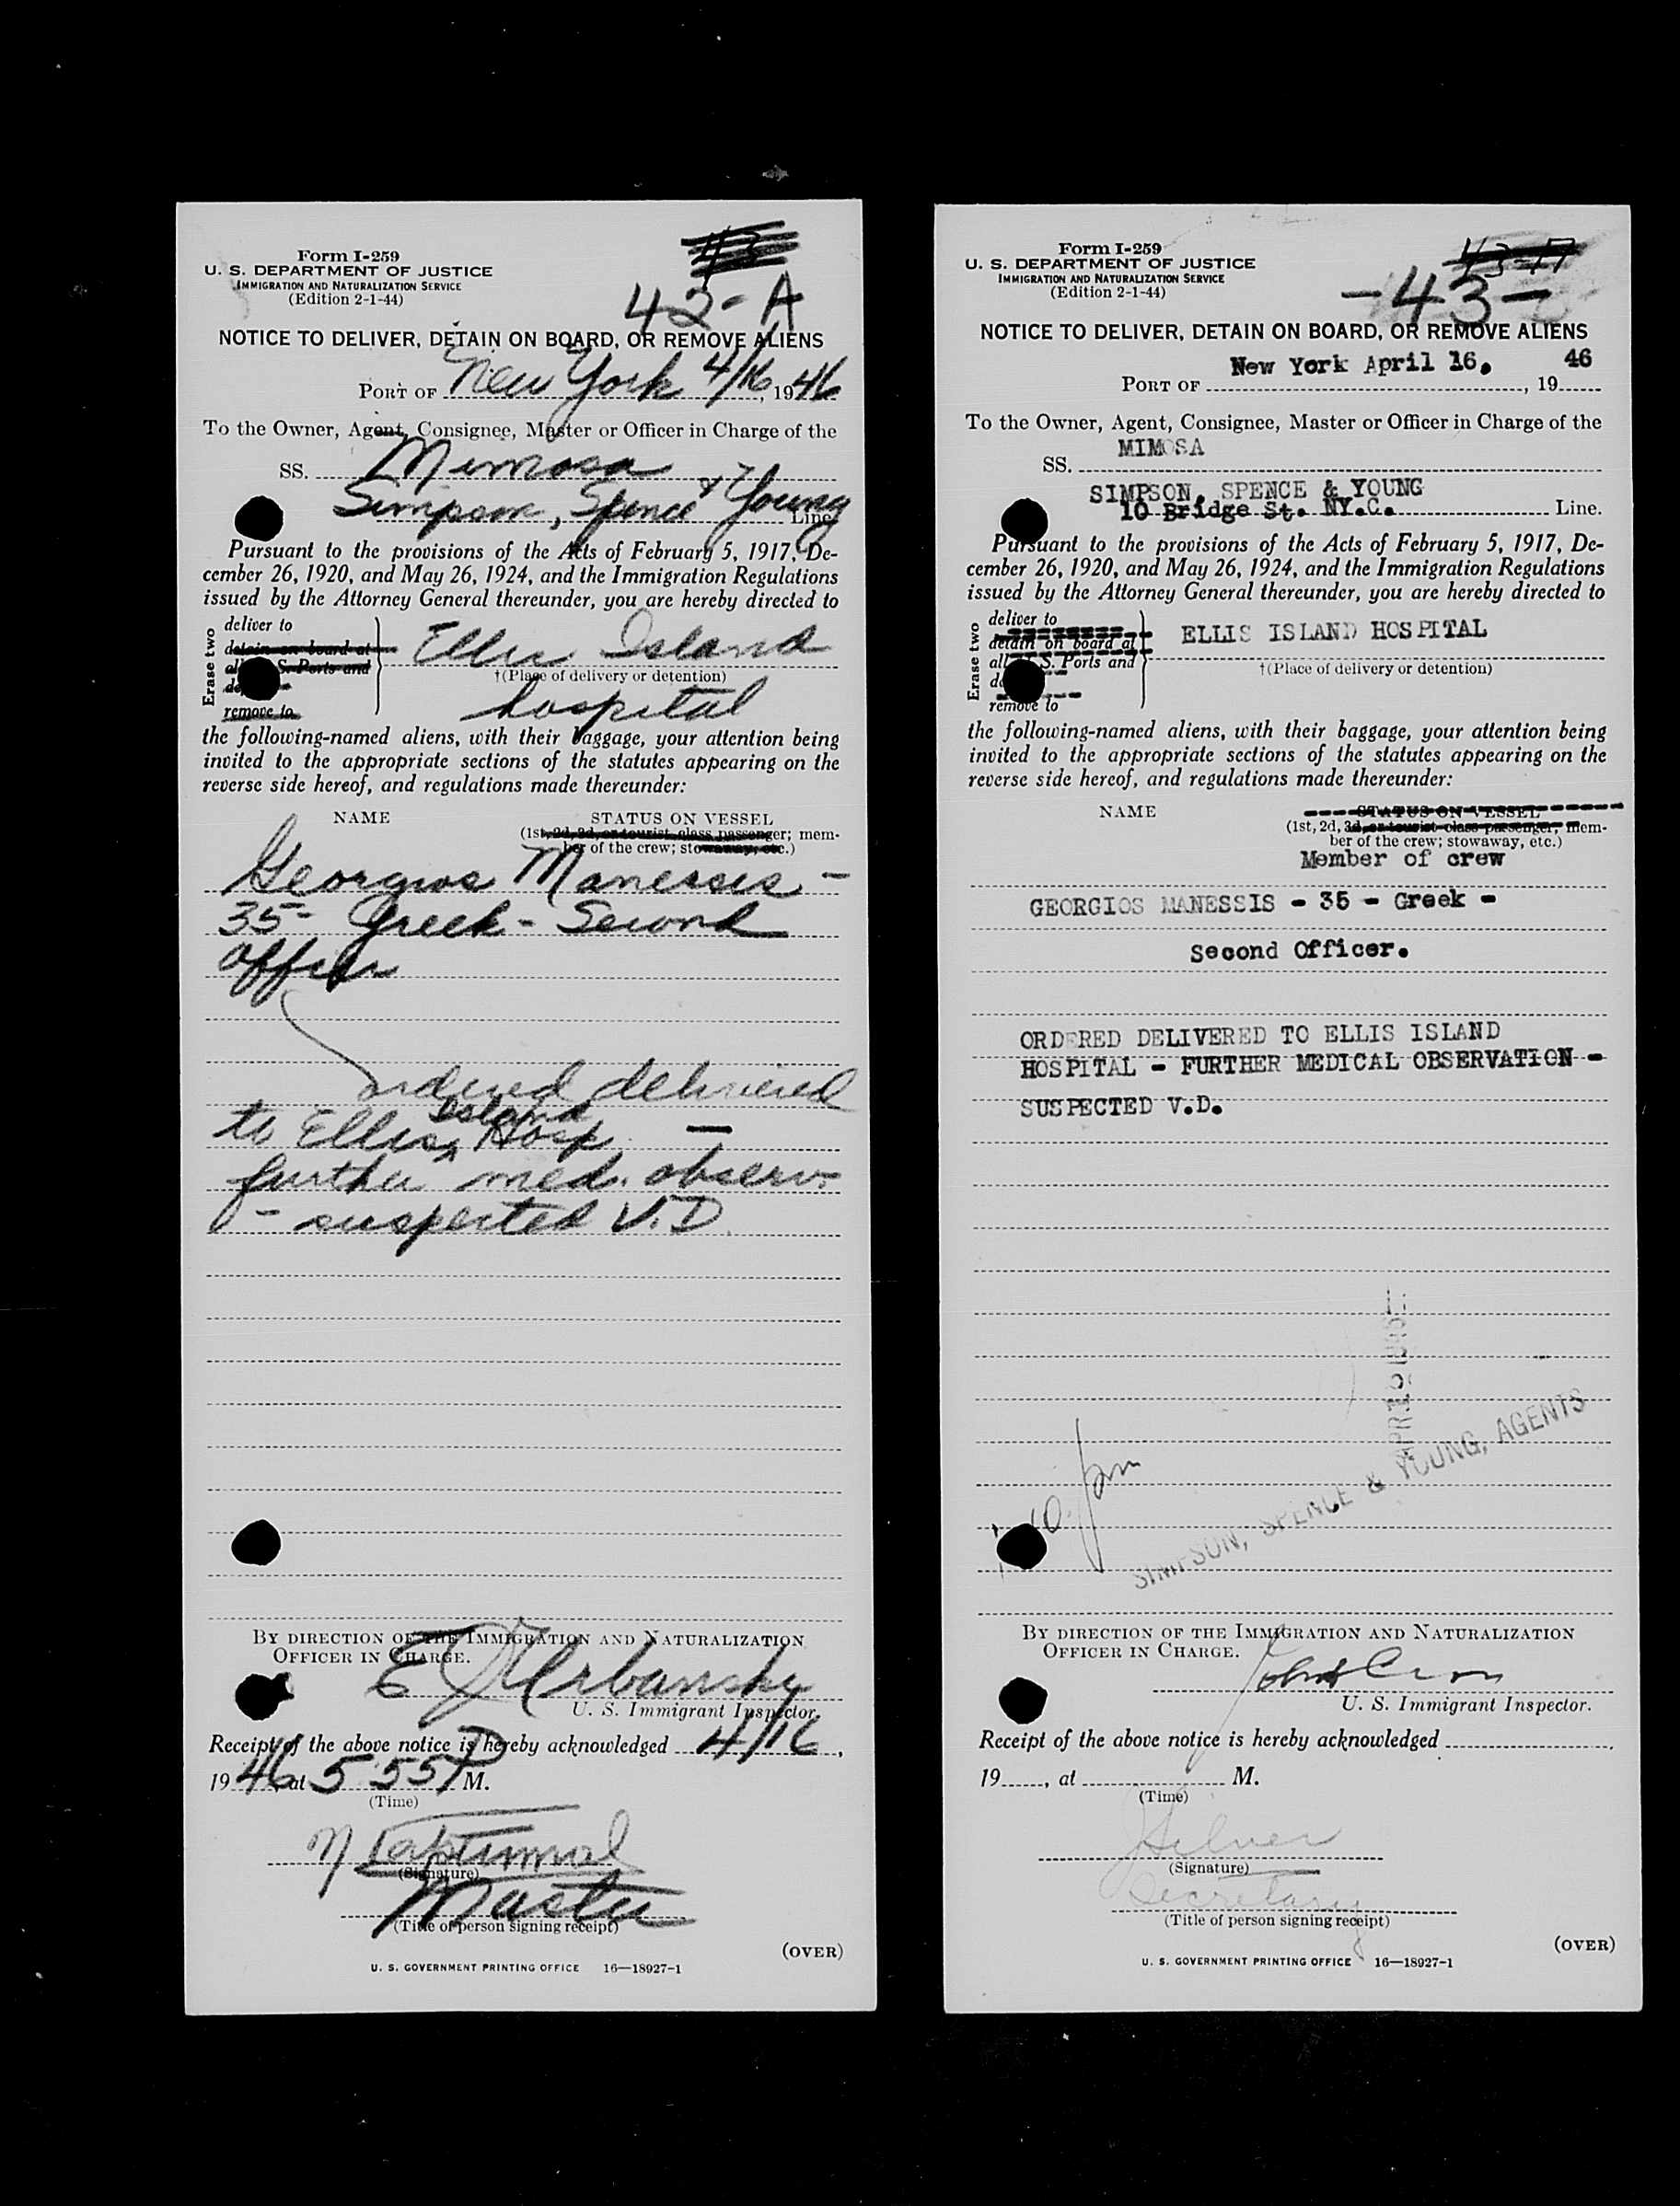 Form I-259
U. S. DEPARTMENT OF JUSTICE
IMMIGRATION AND NATURALIZATION SERVICE
(Edition 2-1-44)
43
42-A
NOTICE TO DELIVER, DETAIN ON BOARD, OR REMOVE ALIENS
PORT OF New York 4/16, 1946
To the Owner, Agent, Consignee, Master or Officer in Charge of the
SS. Mimosa
Simpson, Spence & Young Line.
Pursuant to the provisions of the Acts of February 5, 1917, De-
cember 26, 1920, and May 26, 1924, and the Immigration Regulations
issued by the Attorney General thereunder, you are hereby directed to
Erase two
deliver to
detain on board at
all S. Ports and
remove to
Ellis Island
†(Place of delivery or detention)
hospital
the following-named aliens, with their baggage, your attention being
invited to the appropriate sections of the statutes appearing on the
reverse side hereof, and regulations made thereunder:
NAME STATUS ON VESSEL
(1st, 2d, 3d, or tourist-class passenger; mem-
ber of the crew; stowaway, etc.)
Georgios Manessis -
35 - Greek - Second
Officer
ordered delivered
to Ellis Island Hosp. -
further med. observ.
- suspected V.D.
BY DIRECTION OF THE IMMIGRATION AND NATURALIZATION
OFFICER IN CHARGE.
E J Urbansky
U. S. Immigrant Inspector.
Receipt of the above notice is hereby acknowledged 4/16,
1946, at 5 55 P M.
(Time)
(Signature)
Master
(Title of person signing receipt)
(OVER)
U. S. GOVERNMENT PRINTING OFFICE 16—18927-1
Form I-259
U. S. DEPARTMENT OF JUSTICE
IMMIGRATION AND NATURALIZATION SERVICE
(Edition 2-1-44)
-43-
NOTICE TO DELIVER, DETAIN ON BOARD, OR REMOVE ALIENS
PORT OF New York April 16., 19 46
To the Owner, Agent, Consignee, Master or Officer in Charge of the
SS. MIMOSA
SIMPSON, SPENCE & YOUNG
10 Bridge St. NY.C. Line.
Pursuant to the provisions of the Acts of February 5, 1917, De-
cember 26, 1920, and May 26, 1924, and the Immigration Regulations
issued by the Attorney General thereunder, you are hereby directed to
Erase two
deliver to
detain on board at
all S. Ports and
remove to
ELLIS ISLAND HOSPITAL
†(Place of delivery or detention)
the following-named aliens, with their baggage, your attention being
invited to the appropriate sections of the statutes appearing on the
reverse side hereof, and regulations made thereunder:
NAME STATUS ON VESSEL
(1st, 2d, 3d, or tourist-class passenger; mem-
ber of the crew; stowaway, etc.)
Member of crew
GEORGIOS MANESSIS - 35 - Greek -
Second Officer.
ORDERED DELIVERED TO ELLIS ISLAND
HOSPITAL - FURTHER MEDICAL OBSERVATION -
SUSPECTED V.D.
SIMPSON, SPENCE & YOUNG, AGENTS
BY DIRECTION OF THE IMMIGRATION AND NATURALIZATION
OFFICER IN CHARGE.
U. S. Immigrant Inspector.
Receipt of the above notice is hereby acknowledged
19, at M.
(Time)
(Signature)
Secretary
(Title of person signing receipt)
(OVER)
U. S. GOVERNMENT PRINTING OFFICE 16—18927-1